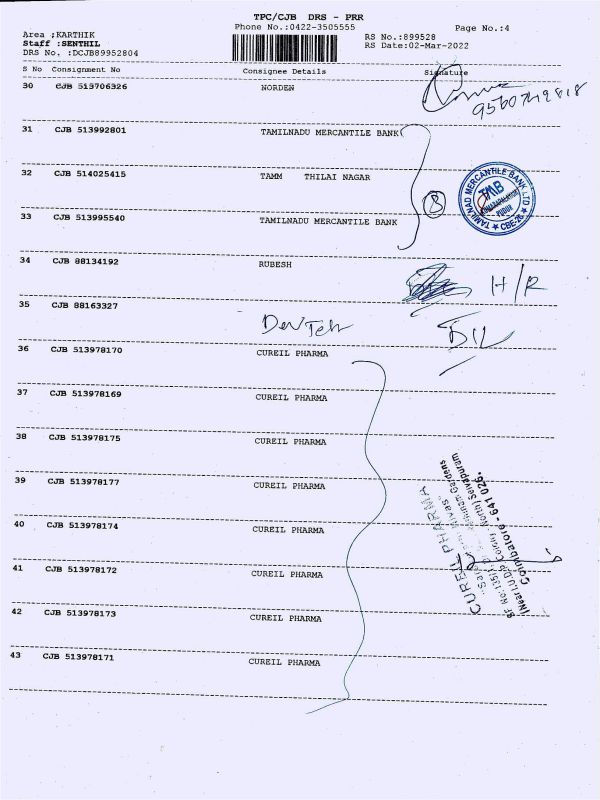 TPC/CJB DRS - PRR
Phone No.:0422-3505555 Page No.:4
Area ;KARTHIK
Staff :SENTHIL
DRS No. :DCJB89952804
RS No.:899528
RS Date:02-Mar-2022
S No Consignment No Consignee Details Signature
30 CJB 513706326 NORDEN
31 CJB 513992801 TAMILNADU MERCANTILE BANK
32 CJB 514025415 TAMM THILAI NAGAR
33 CJB 513995540 TAMILNADU MERCANTILE BANK
8
TAMILNAD MERCANTILE BANK LTD
TMB
CBE-26
34 CJB 88134192 RUBESH H/R
35 CJB 88163327
36 CJB 513978170 CUREIL PHARMA
37 CJB 513978169 CUREIL PHARMA
38 CJB 513978175 CUREIL PHARMA
39 CJB 513978177 CUREIL PHARMA
40 CJB 513978174 CUREIL PHARMA
41 CJB 513978172 CUREIL PHARMA
42 CJB 513978173 CUREIL PHARMA
43 CJB 513978171 CUREIL PHARMA
CUREIL PHARMA
Coimbatore - 641 026.